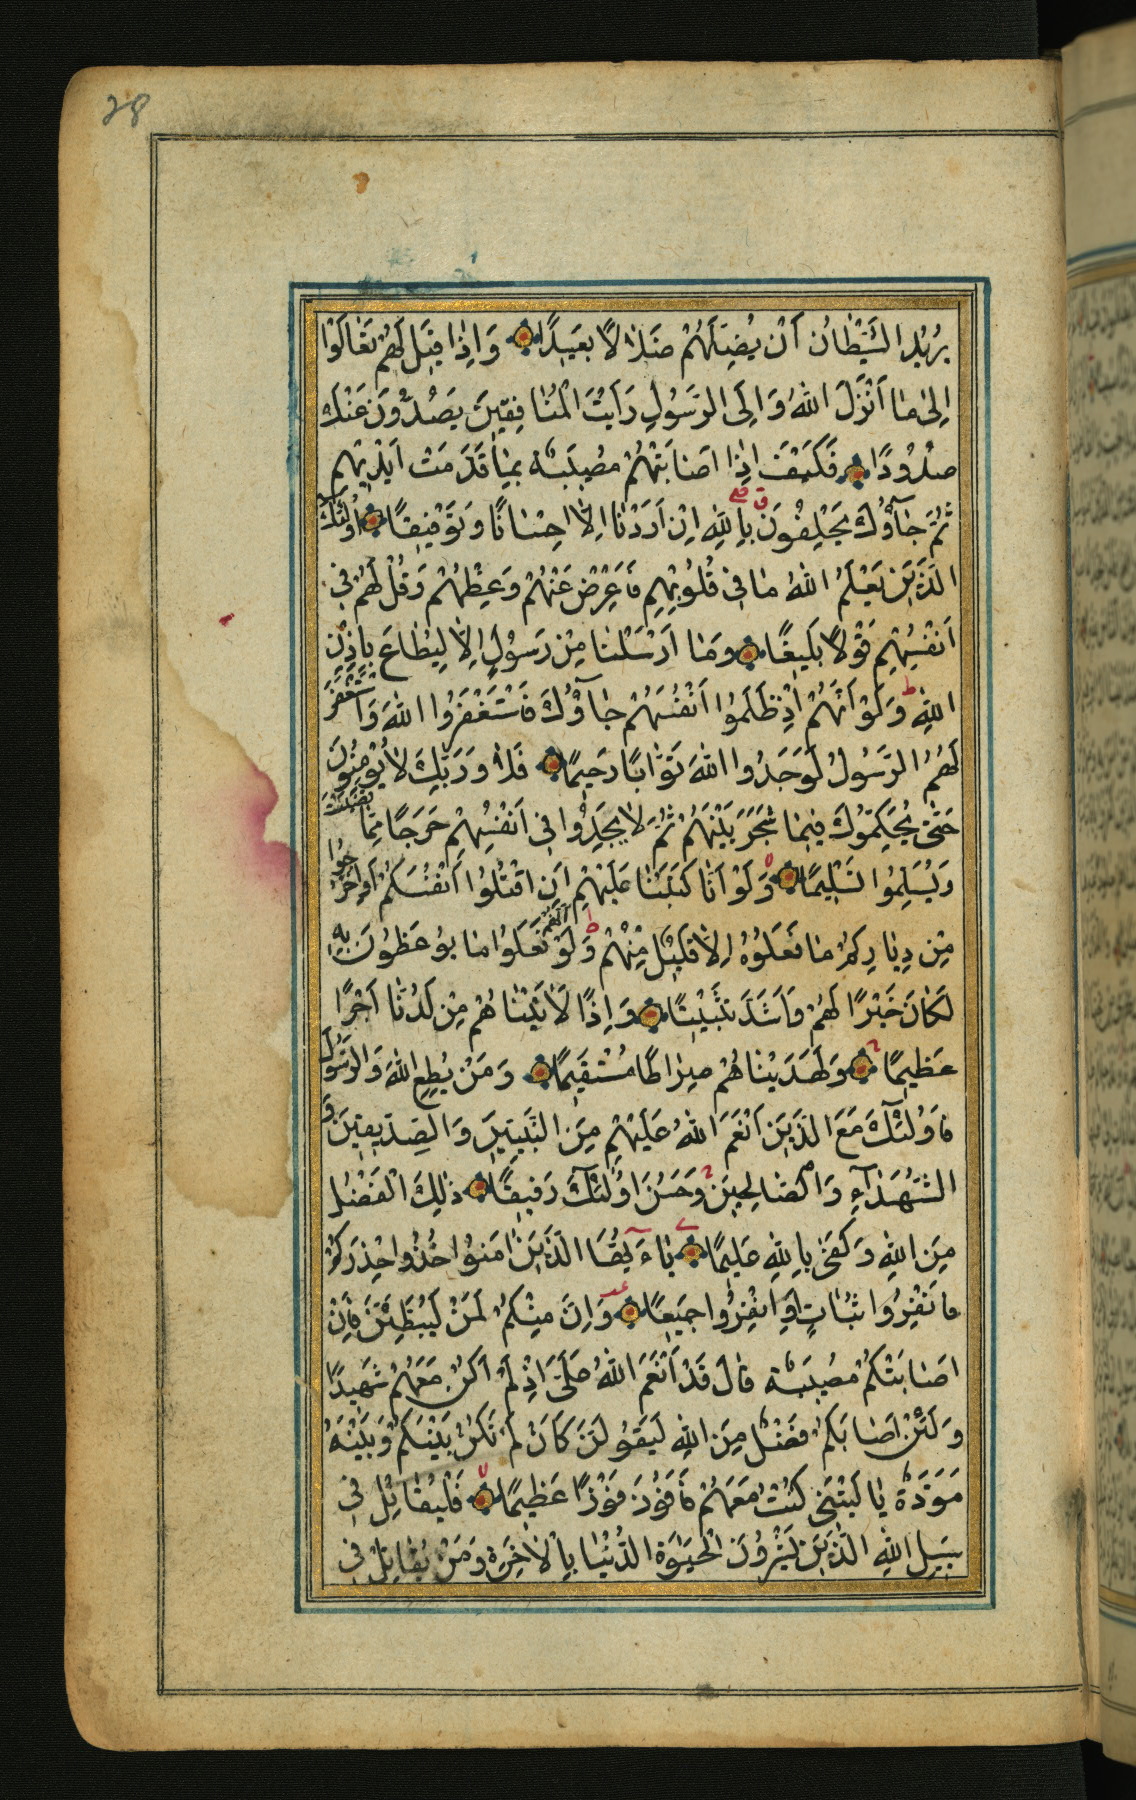 28
يُرِيدُ الشَّيْطَانُ أَنْ يُضِلَّهُمْ ضَلَالًا بَعِيدًا وَاِذَا قِيلَ لَهُمْ تَعَالَوْا
اِلىٰ مَا اَنْزَلَ اللّٰهُ وَاِلَى الرَّسُولِ رَاَيْتَ الْمُنَافِقِينَ يَصُدُّونَ عَنْكَ
صُدُودًا فَكَيْفَ اِذَا اَصَابَتْهُمْ مُصِيبَةٌ بِمَا قَدَّمَتْ اَيْدِيهِمْ
ثُمَّ جَآؤُكَ يَحْلِفُونَ بِاللّٰهِ اِنْ اَرَدْنَا اِلَّا اِحْسَانًا وَتَوْفِيقًا اُولٰئِكَ
الَّذِينَ يَعْلَمُ اللّٰهُ مَا فِي قُلُوبِهِمْ فَاَعْرِضْ عَنْهُمْ وَعِظْهُمْ وَقُلْ لَهُمْ فِي
اَنْفُسِهِمْ قَوْلًا بَلِيغًا وَمَا اَرْسَلْنَا مِنْ رَسُولٍ اِلَّا لِيُطَاعَ بِاِذْنِ
اللّٰهِ ط وَلَوْ اَنَّهُمْ اِذْ ظَلَمُوا اَنْفُسَهُمْ جَآؤُكَ فَاسْتَغْفَرُوا اللّٰهَ وَاسْتَغْفَرَ
لَهُمُ الرَّسُولُ لَوَجَدُوا اللّٰهَ تَوَّابًا رَحِيمًا فَلَا وَرَبِّكَ لَا يُؤْمِنُونَ
حَتّىٰ يُحَكِّمُوكَ فِيمَا شَجَرَ بَيْنَهُمْ ثُمَّ لَا يَجِدُوا فِي اَنْفُسِهِمْ حَرَجًا مِمَّا قَضَيْتَ
وَيُسَلِّمُوا تَسْلِيمًا وَلَوْ اَنَّا كَتَبْنَا عَلَيْهِمْ اَنِ اقْتُلُوا اَنْفُسَكُمْ اَوِ اخْرُجُوا
مِنْ دِيَارِكُمْ مَا فَعَلُوهُ اِلَّا قَلِيلٌ مِنْهُمْ ط وَلَوْ اَنَّهُمْ فَعَلُوا مَا يُوعَظُونَ بِهِ
لَكَانَ خَيْرًا لَهُمْ وَاَشَدَّ تَثْبِيتًا وَاِذًا لَاٰتَيْنَاهُمْ مِنْ لَدُنَّا اَجْرًا
عَظِيمًا وَلَهَدَيْنَاهُمْ صِرَاطًا مُسْتَقِيمًا وَمَنْ يُطِعِ اللّٰهَ وَالرَّسُولَ
فَاُولٰئِكَ مَعَ الَّذِينَ اَنْعَمَ اللّٰهُ عَلَيْهِمْ مِنَ النَّبِيِّينَ وَالصِّدِّيقِينَ وَ
الشُّهَدَآءِ وَالصَّالِحِينَ وَحَسُنَ اُولٰئِكَ رَفِيقًا ذٰلِكَ الْفَضْلُ
مِنَ اللّٰهِ وَكَفىٰ بِاللّٰهِ عَلِيمًا يَاءَ يُّهَا الَّذِينَ اٰمَنُوا خُذُوا حِذْرَكُمْ
فَانْفِرُوا ثُبَاتٍ اَوِ انْفِرُوا جَمِيعًا وَاِنَّ مِنْكُمْ لَمَنْ لَيُبَطِّئَنَّ فَاِنْ
اَصَابَتْكُمْ مُصِيبَةٌ قَالَ قَدْ اَنْعَمَ اللّٰهُ عَلَيَّ اِذْ لَمْ اَكُنْ مَعَهُمْ شَهِيدًا
وَلَئِنْ اَصَابَكُمْ فَضْلٌ مِنَ اللّٰهِ لَيَقُولَنَّ كَاَنْ لَمْ تَكُنْ بَيْنَكُمْ وَبَيْنَهُ
مَوَدَّةٌ يَا لَيْتَنِي كُنْتُ مَعَهُمْ فَاَفُوزَ فَوْزًا عَظِيمًا فَلْيُقَاتِلْ فِي
سَبِيلِ اللّٰهِ الَّذِينَ يَشْرُونَ الْحَيٰوةَ الدُّنْيَا بِالْاٰخِرَةِ وَمَنْ يُقَاتِلْ فِي